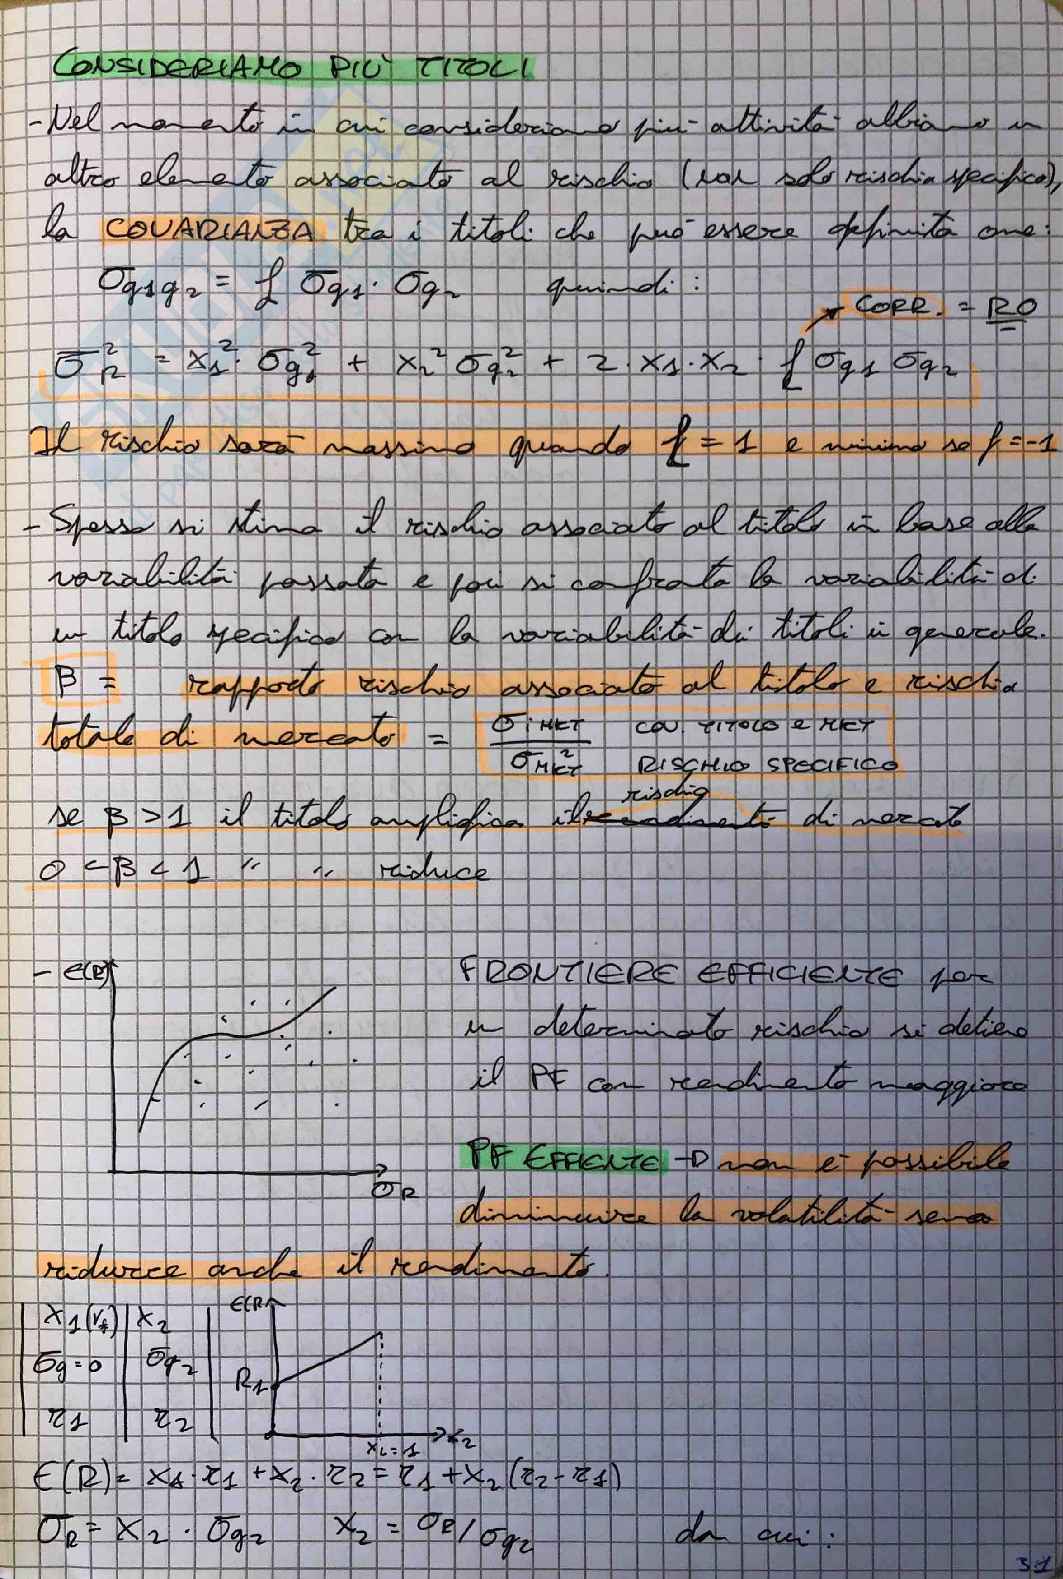 CONSIDERIAMO PIÙ TITOLI
- Nel momento in cui consideriamo più attività abbiamo un
altro elemento associato al rischio (non solo rischio specifico),
la COVARIANZA tra i titoli che può essere definita come:
σg1g2 = ρ σg1 · σg2 quindi:
CORR. = RO
σ²R = x1² · σ²g1 + x2² σ²g2 + 2 · x1 · x2 · ρ σg1 σg2
Il rischio sarà massimo quando ρ = 1 e minimo se ρ = -1
- Spesso si stima il rischio associato al titolo in base alla
variabilità passata e poi si confronta la variabilità di
un titolo specifico con la variabilità dei titoli in generale.
β = rapporto rischio associato al titolo e rischio
totale di mercato = σiMKT / σMKT² COV. TITOLO E MKT
RISCHIO SPECIFICO
rischio
se β > 1 il titolo amplifica il rendimento di mercato
0 < β < 1 " " riduce
- E(R)
FRONTIERE EFFICIENTE per
un determinato rischio si detiene
il PF con rendimento maggiore
σR
PF EFFIENTE → non è possibile
diminuire la volatilità senza
ridurre anche il rendimento.
x1(rf) x2
E(R)
σg=0 σg2
R1
r1 r2
x2=1 x2
E(R) = x1 · r1 + x2 · r2 = r1 + x2 (r2 - r1)
σR = x2 · σg2 x2 = σR/σg2 da cui:
31